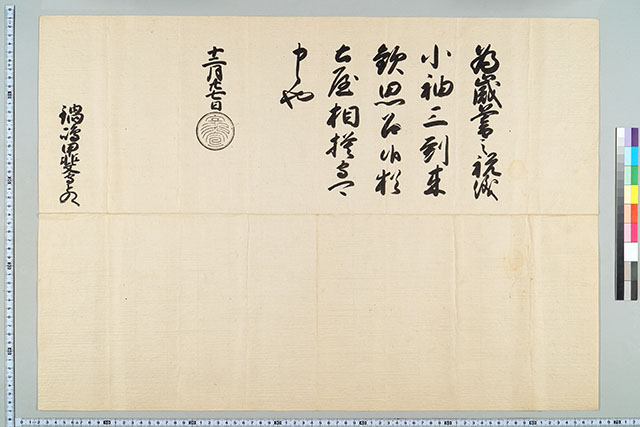 為歳暮之祝儀
小袖三到来
歓思召候猶
土屋相模守可
申也
十二月廿七日
鍋嶋甲斐守とのへ